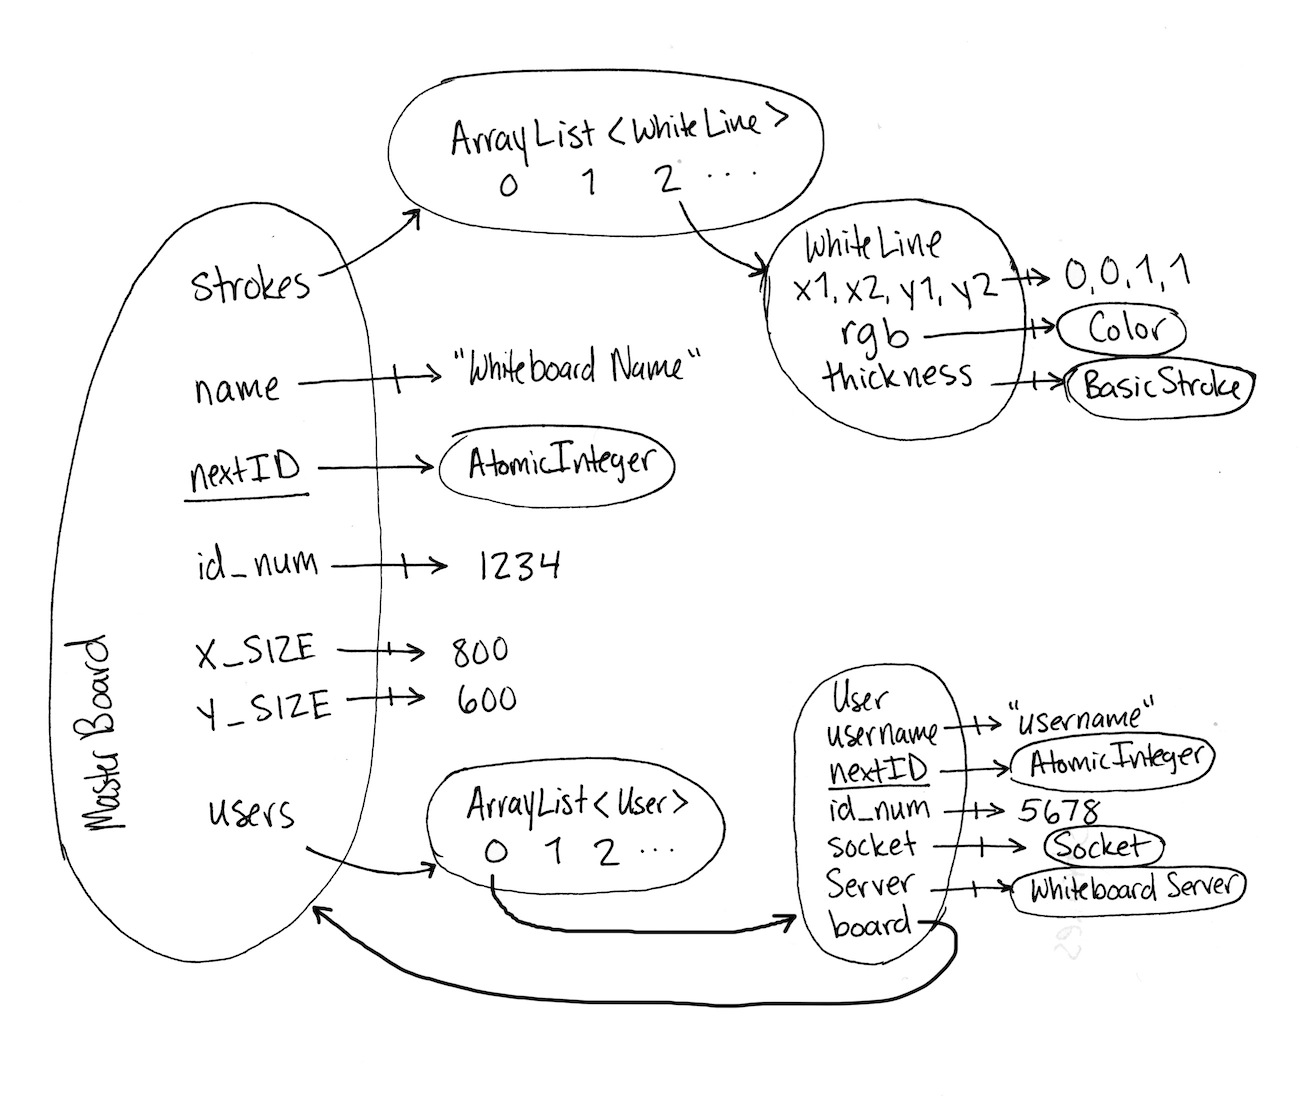 ArrayList <WhiteLine>
0 1 2 ...
WhiteLine
x1, x2, y1, y2 0,0,1,1
rgb Color
thickness BasicStroke
strokes
name "Whiteboard Name"
nextID AtomicInteger
id_num 1234
X_SIZE 800
Y_SIZE 600
Master Board
users
ArrayList<User>
0 1 2 ...
User
username "username"
nextID AtomicInteger
id_num 5678
socket Socket
Server Whiteboard Server
board